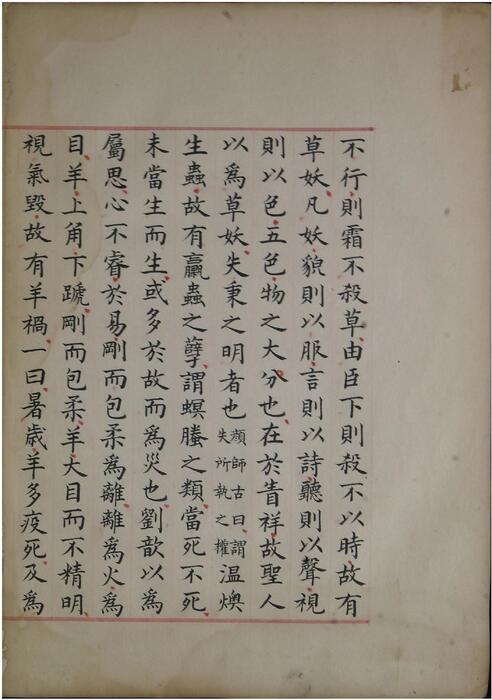 不行則霜不殺草由臣下則殺不以時故有
草妖凡妖貌則以服言則以詩聽則以聲視
則以色五色物之大分也在於眚祥故聖人
以爲草妖失秉之明者也顏師古曰謂失所執之權温燠
生蟲故有蠃蟲之孽謂螟螣之類當死不死
未當生而生或多於故而爲災也劉歆以爲
屬思心不睿於易剛而包柔爲離離爲火爲
目羊上角下蹏剛而包柔羊大目而不精明
視氣毀故有羊禍一曰暑歲羊多疫死及爲